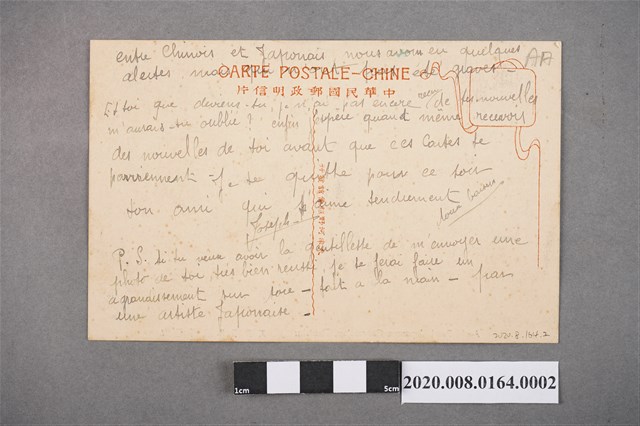 entre Chinois et Japonais, nous avons eu quelques
AA
alertes mais
graves -
CARTE POSTALE-CHINE
中華民國郵政明信片
Et toi que deviens-tu, je n'ai pas encore reçu de tes nouvelles
m'aurais-tu oublié? enfin j'espère quand même recevoir
des nouvelles de toi avant que ces cartes te
parviennent - Je te quitte pour ce soir
ton ami qui t'aime tendrement
doux baisers
Joseph
P.S. si tu veux avoir la gentillesse de m'envoyer une
photo de toi très bien réussie, je te ferai faire un
agrandissement sur soie - fait à la main - par
une artiste Japonaise -
2020.8.164.2
1cm
5cm
2020.008.0164.0002